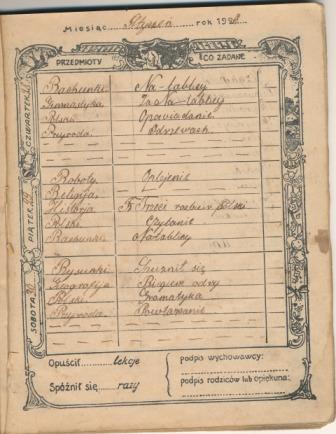 Miesiąc Styczeń rok 1928
PRZEDMIOTY CO ZADANE
CZWARTEK
Rachunki Na tablicy
Gimnastyka Zada tablicy
Polski Opowiadanie
Przyroda O drzewach
PIĄTEK
Roboty Oplejenie
Religija
Historja Treść rozbiór Polski
Polski Czytanie
Rachunki Na tablicy
SOBOTA
Rysunki Nauczić się
Geografija Biegiem odry
Polski Gramatyka
Przyroda Powtarzanie
Opuścił lekcje podpis wychowawcy:
Spóźnił się razy podpis rodziców lub opiekuna: